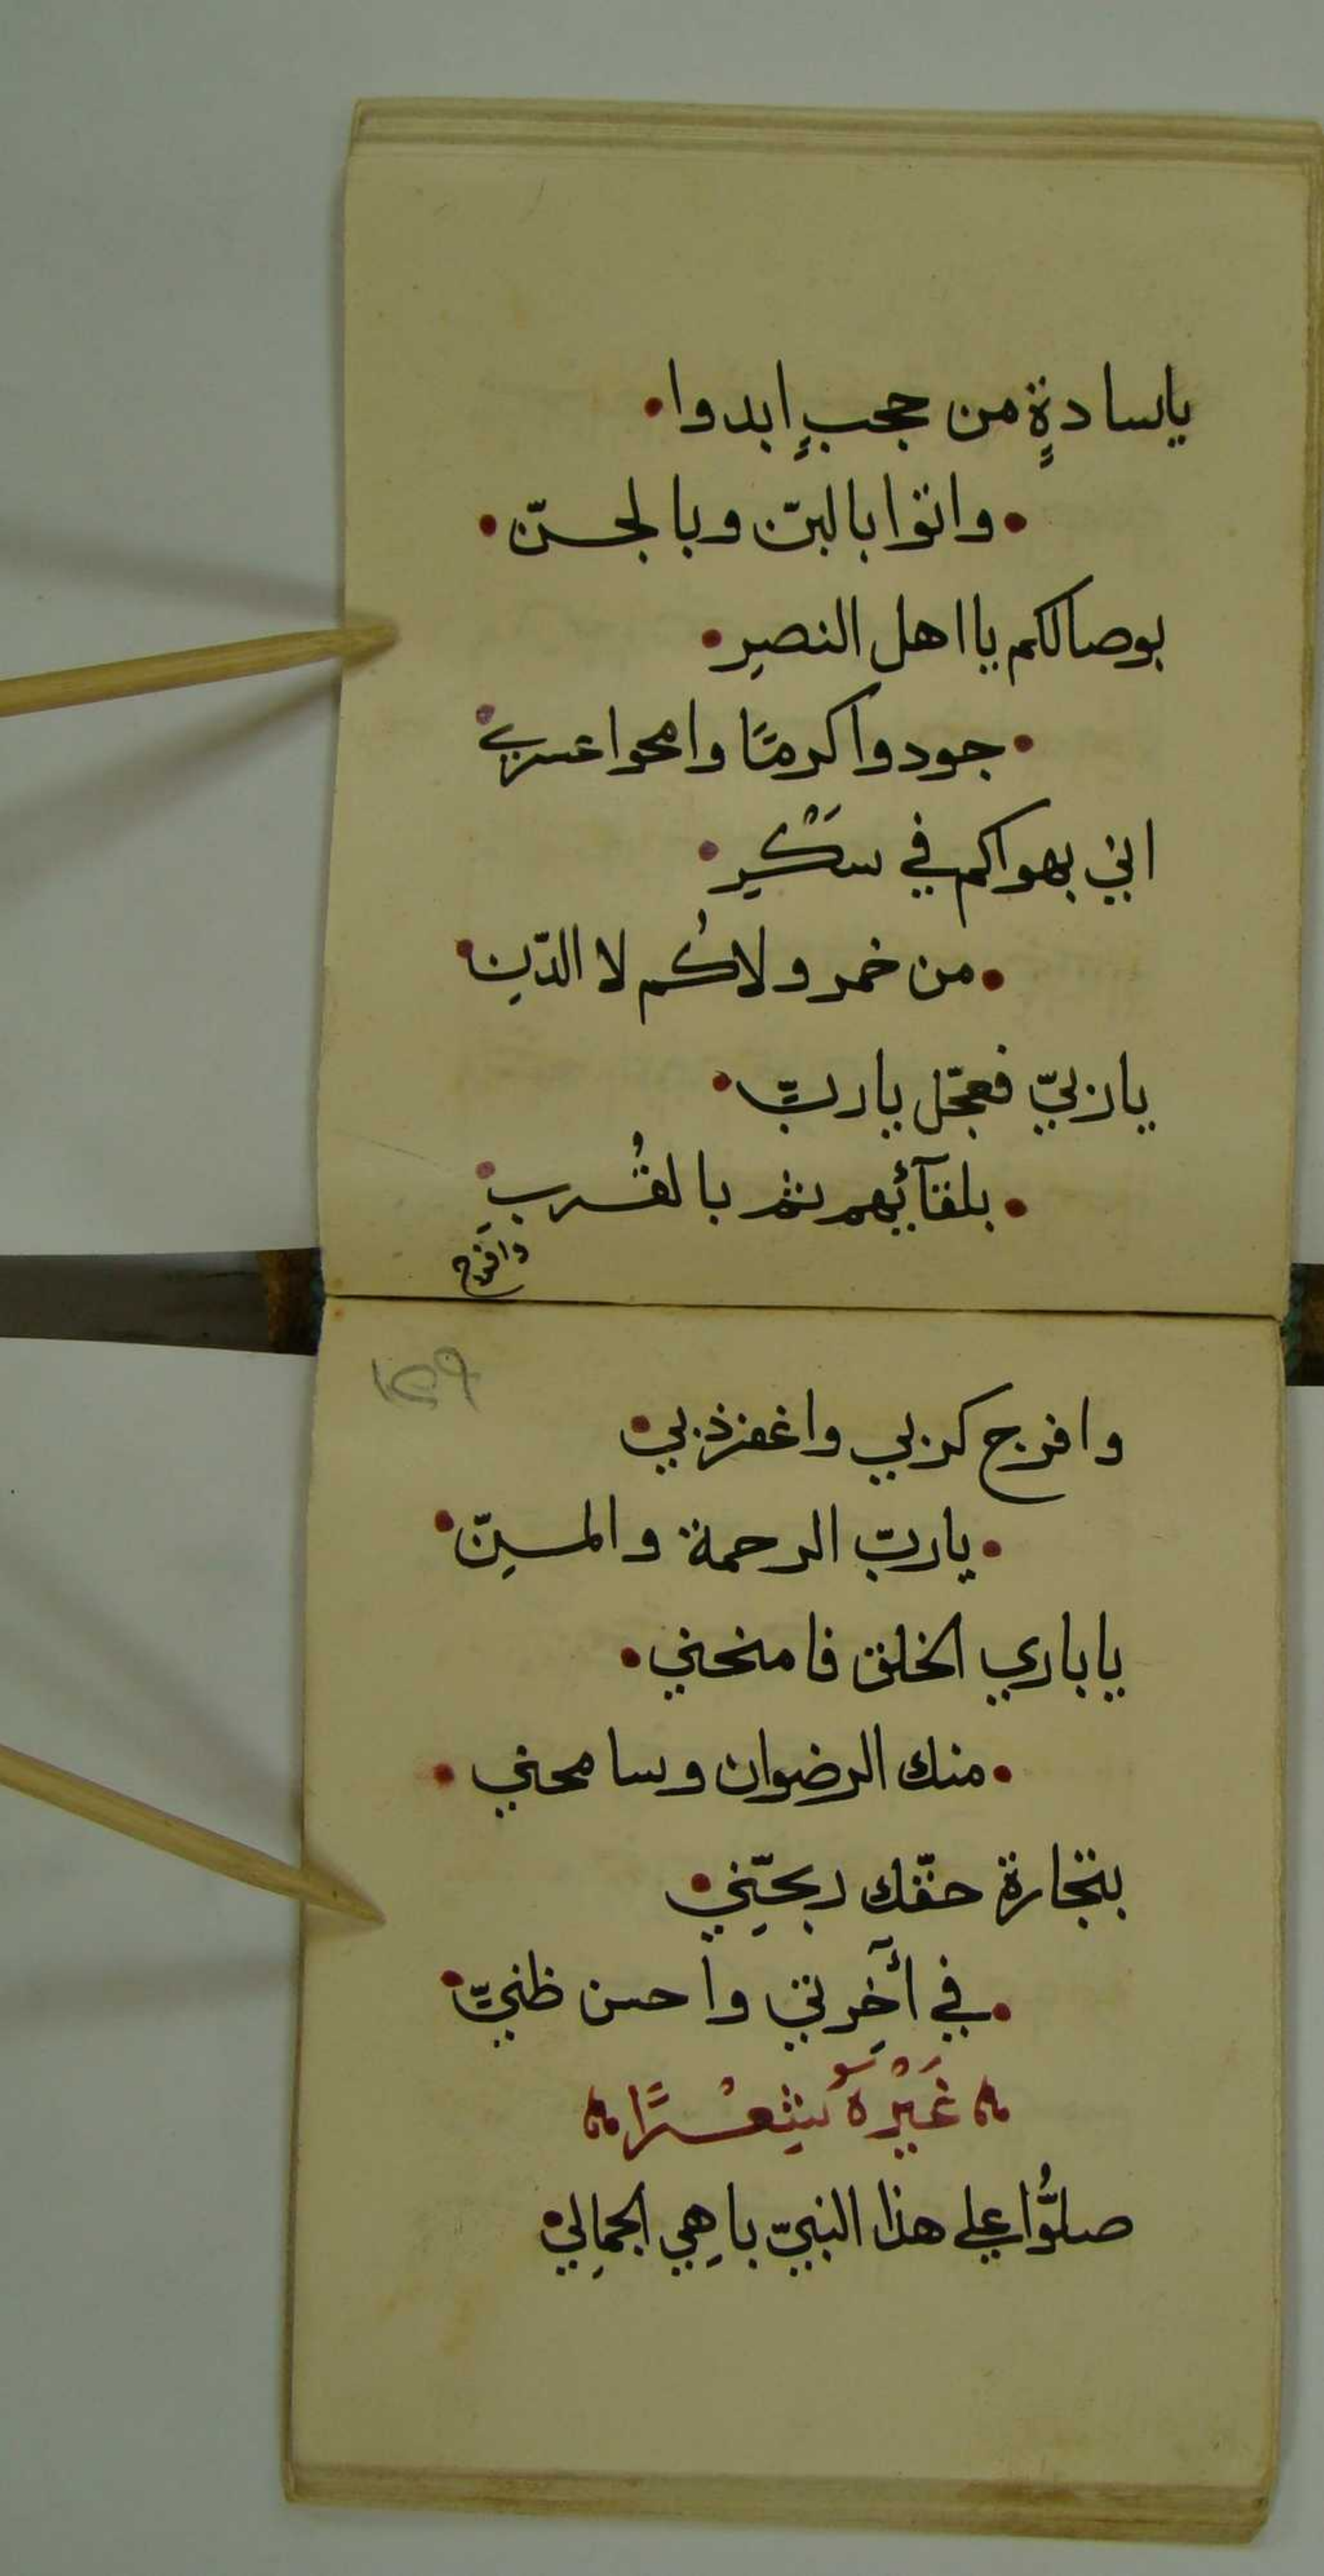 ياسادةٍ من حجبٍ ابدوا
واتوا بالبرّ وبالجسّ
بوصالكم يا اهل النصرِ
جودوا كرمًا وامحوا عسري
اني بهواكم في سَكْرٍ
من خمر ولاكُم لا الدّنِ
يا ربيّ فعجّل يا ربيّ
بلقآئهم ثم بالقُربِ
وافرج
وافرج كربي واغفر ذنبي
يا ربّ الرحمة والمنّ
يا باري الخلق فامنحني
منك الرضوان وسامحني
بتجارة حقّك ربّحني
في آخِرتي واحسن ظنيّ
غَيْرهُ شِعْرًا
صلُّوا على هذا النبيّ باهِي الجمالِي